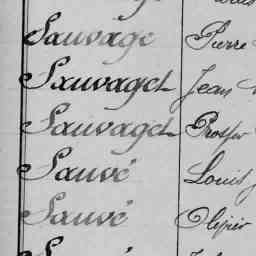 Sauvage Pierre
Sauvaget Jean
Sauvaget Prosper
Sauvé Louis
Sauvé Olivier